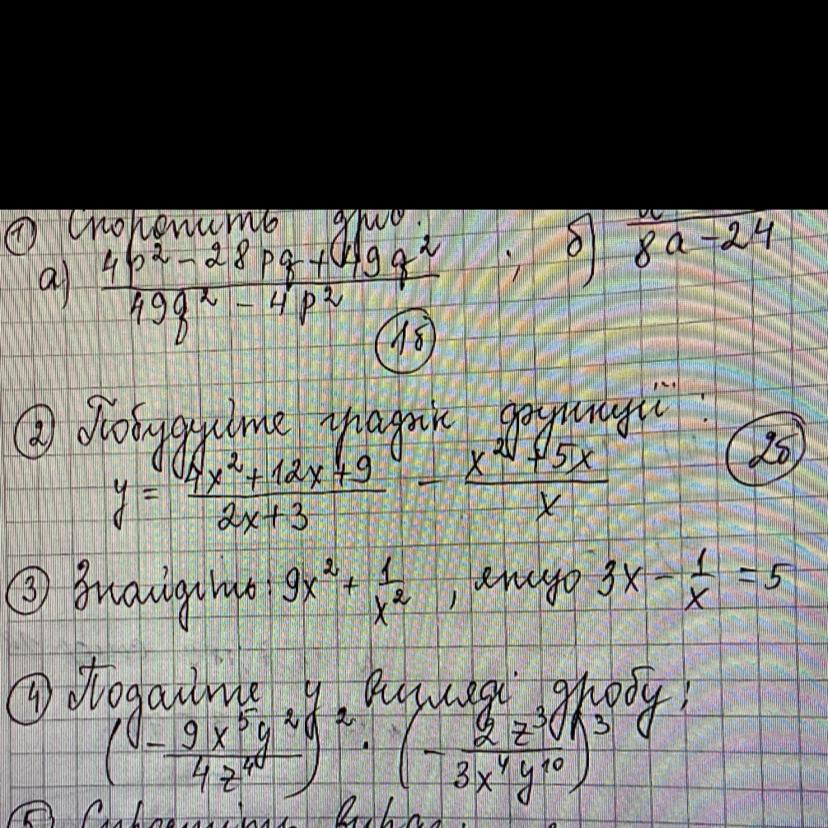 ① Скоротить дріб:
а) (4p² - 28pq + 49q²)/(49q² - 4p²) ; б) /(8a - 24)
1б
② Побудуйте графік функції:
y = (4x² + 12x + 9)/(2x + 3) - (x² + 5x)/x
2б
③ Знайдіть: 9x² + 1/x², якщо 3x - 1/x = 5
④ Подайте у вигляді дробу:
(- 9x⁵y²/4z⁴)² · (- 2z³/3x⁴y¹⁰)³
⑤ Спростіть вираз: